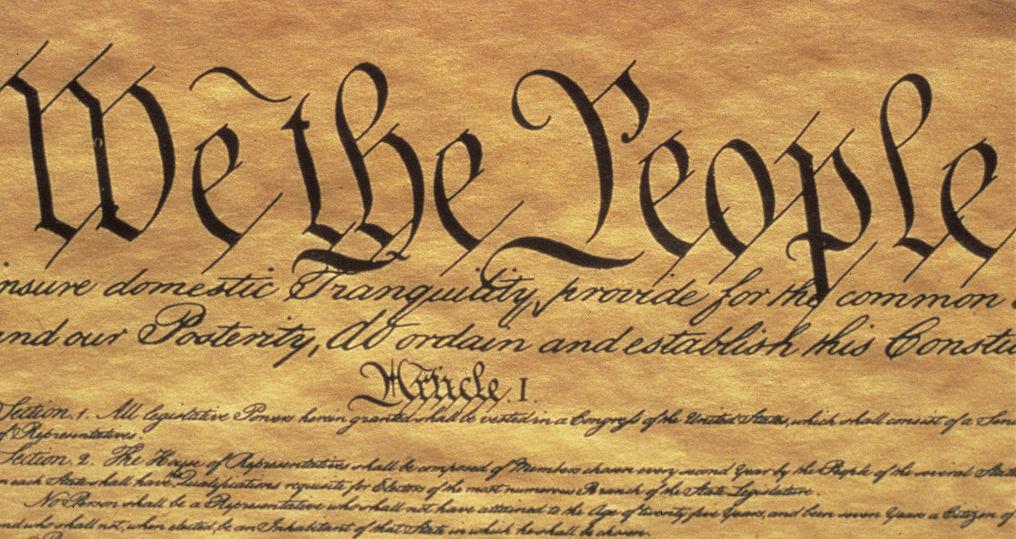 We the People
insure domestic Tranquility, provide for the common
and our Posterity, do ordain and establish this Constitu
Article. I.
Section. 1. All legislative Powers herein granted shall be vested in a Congress of the United States, which shall consist of a Sena
of Representatives.
Section. 2. The House of Representatives shall be composed of Members chosen every second Year by the People of the several States
in each State shall have Qualifications requisite for Electors of the most numerous Branch of the State Legislature.
No Person shall be a Representative who shall not have attained to the Age of twenty five Years, and been seven Years a Citizen of
and who shall not, when elected, be an Inhabitant of that State in which he shall be chosen.